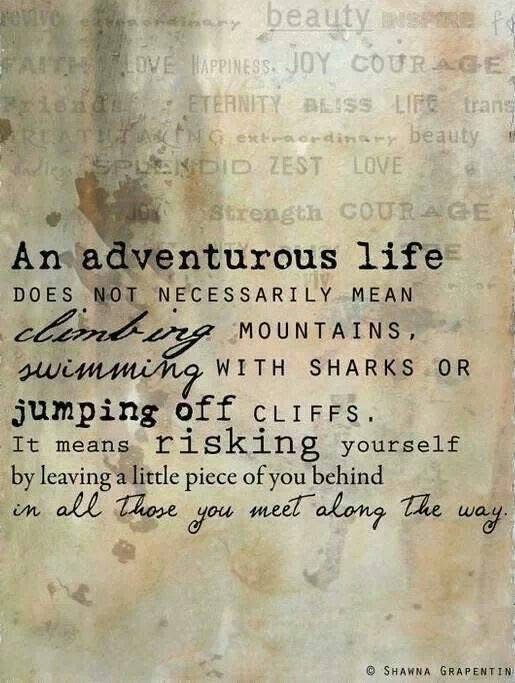 revive extraordinary beauty INSPIRE
FAITH LOVE HAPPINESS. JOY COURAGE
Friends ETERNITY BLISS LIFE trans
BREATHTAKING extraordinary beauty
SPLENDID ZEST LOVE
JOY Strength COURAGE
An adventurous life
DOES NOT NECESSARILY MEAN
climbing MOUNTAINS,
swimming WITH SHARKS OR
jumping off CLIFFS.
It means risking yourself
by leaving a little piece of you behind
in all those you meet along the way.
© SHAWNA GRAPENTIN